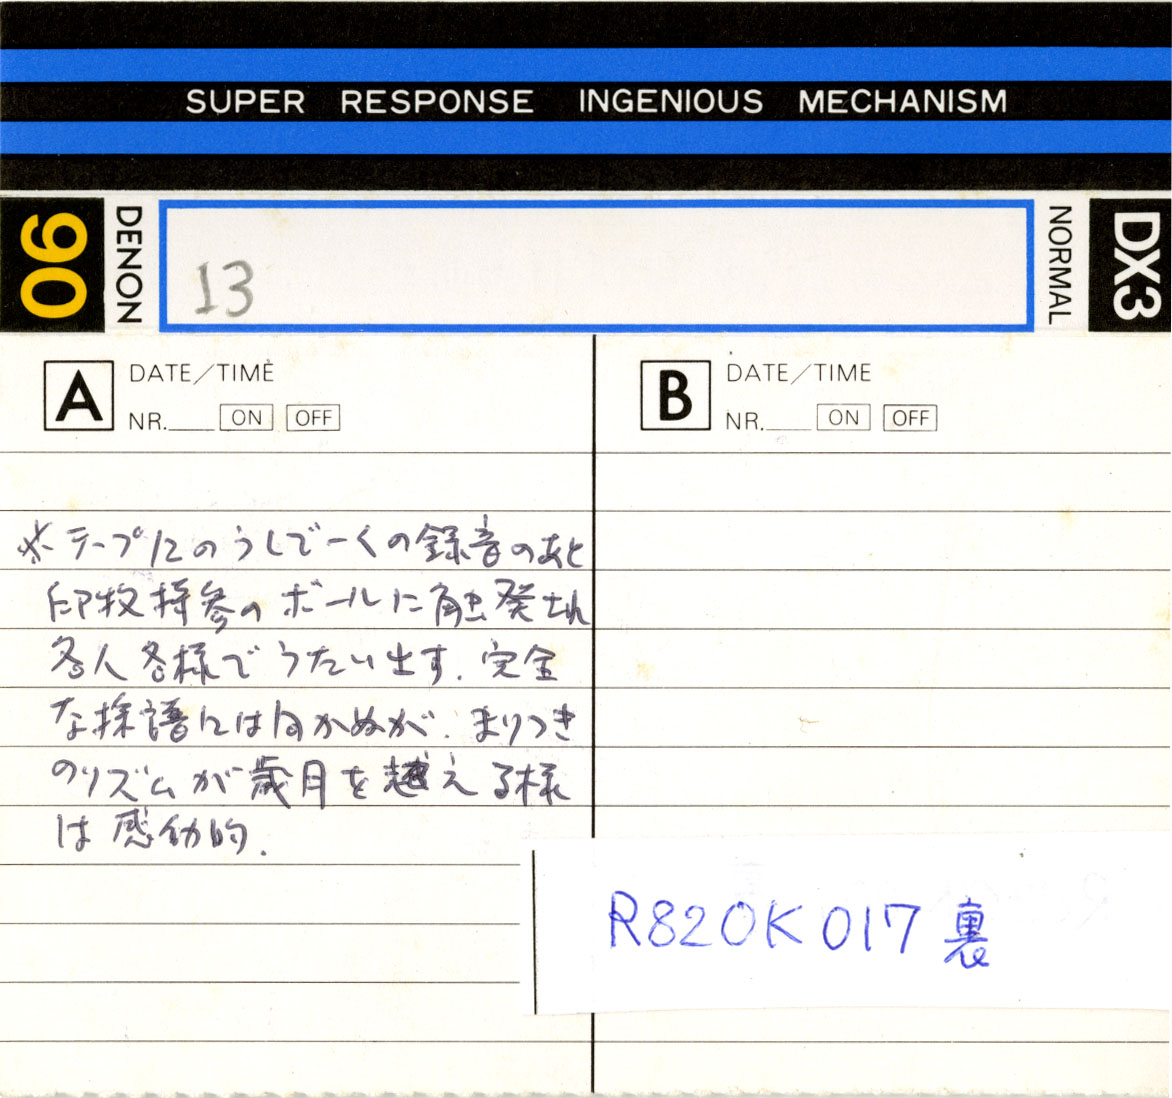 SUPER RESPONSE INGENIOUS MECHANISM
90
DENON
13
NORMAL
DX3
A DATE/TIME
NR.____ ON OFF
B DATE/TIME
NR.____ ON OFF
※テープ12のうしでーくの録音のあと
印牧持参のボールに触発され
各人各様でうたい出す. 完全
な採譜には向かぬが. まりつき
のリズムが歳月を越える様
は感動的.
R82OK017裏